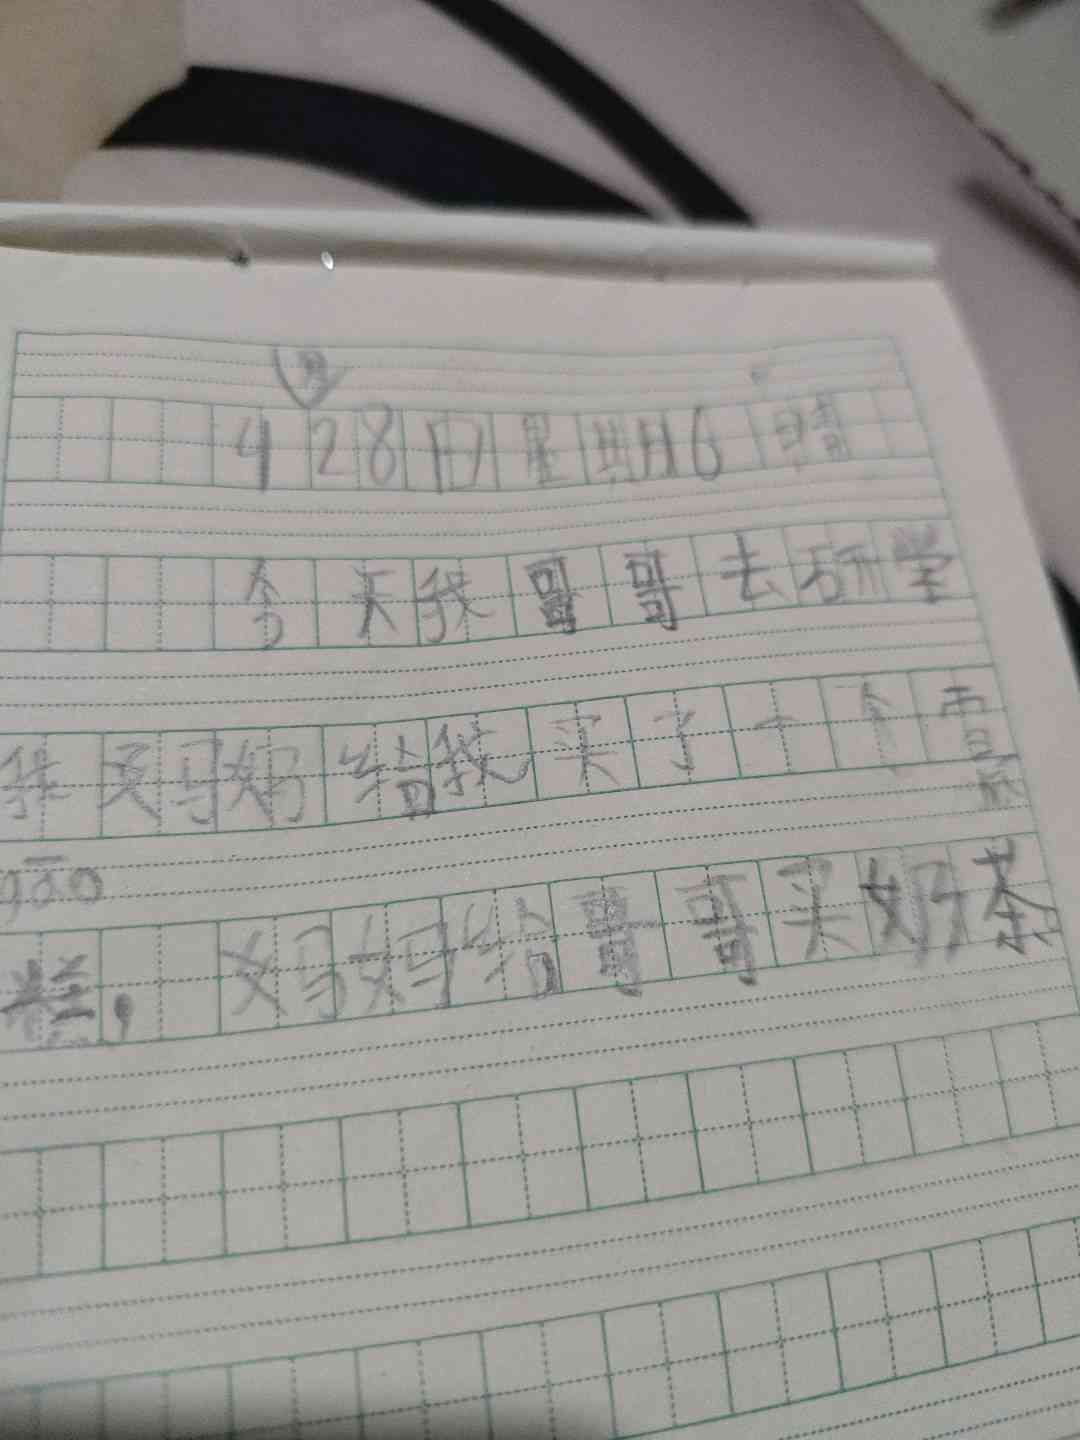 4月28日星期6晴
今天我哥哥去研学
我妈妈给我买了一个雪
gāo
糕，妈妈给哥哥买奶茶